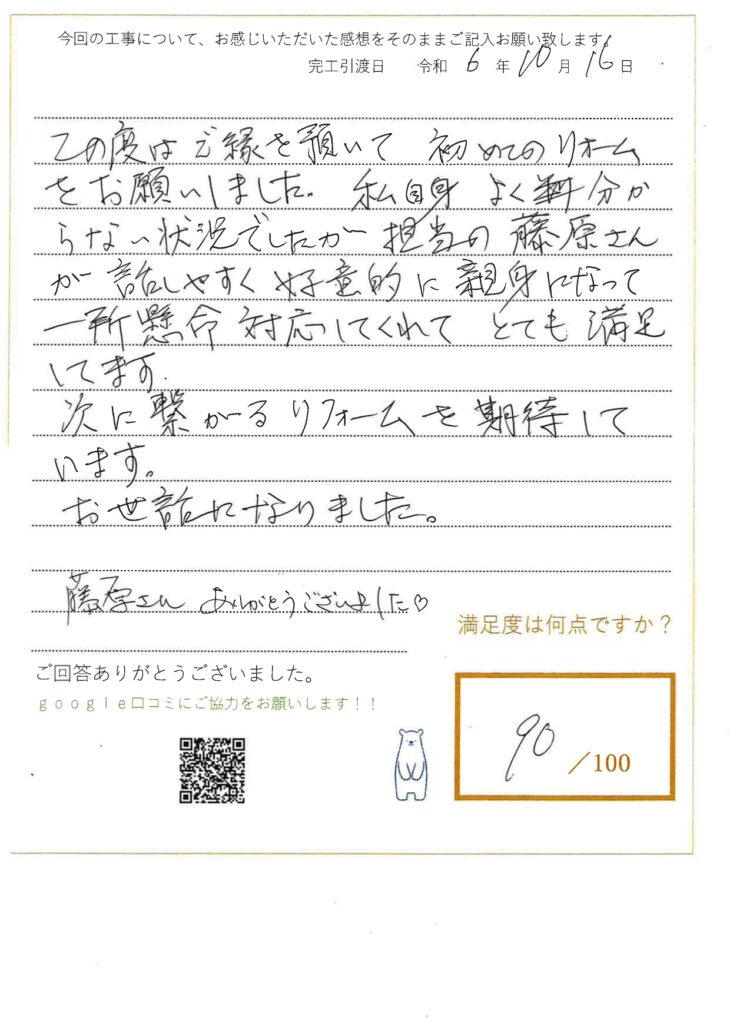 今回の工事について、お感じいただいた感想をそのままご記入お願い致します。
完工引渡日 令和 6 年 10 月 16 日
この度はご縁を頂いて 初めてのリォーム
をお願いしました。私自身 よく分か
らない状況でしたが 担当の 藤原さん
が 話しやすく 好意的に 親身になって
一所懸命 対応してくれて とても 満足
してます.
次に繋がるリフォームを期待して
います。
お世話になりました。
藤原さん ありがとうございました♡
満足度は何点ですか？
ご回答ありがとうございました。
google口コミにご協力をお願いします！！
90 ／100